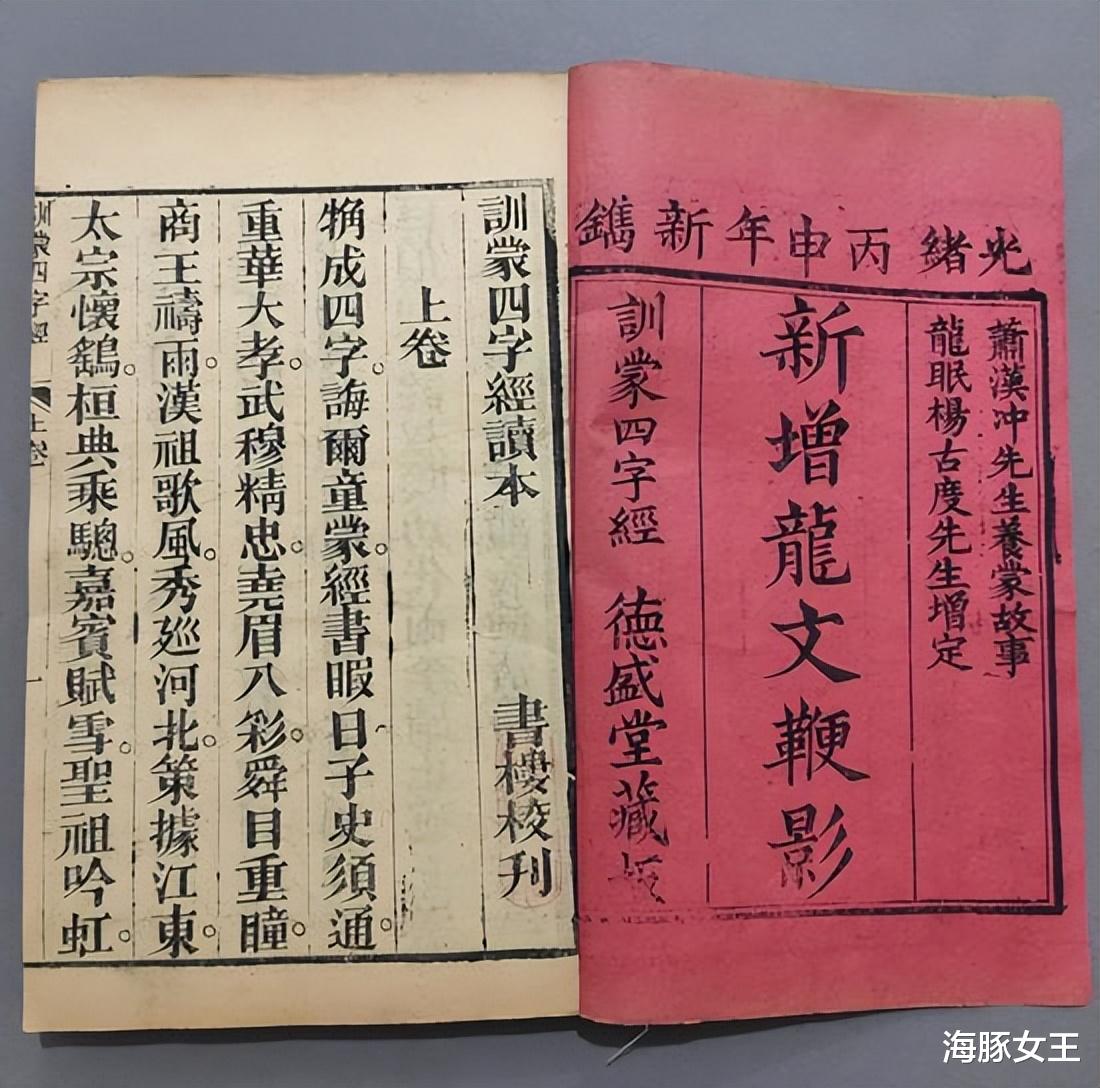 光緒丙申年新鐫
蕭漢冲先生養蒙故事
龍眠楊古度先生增定
新增龍文鞭影
訓蒙四字經 德盛堂藏板
訓蒙四字經讀本 書樓校刊
上卷
觕成四字。誨爾童蒙。經書暇日。子史須通。
重華大孝。武穆精忠。堯眉八彩。舜目重瞳。
商王禱雨。漢祖歌風。秀廵河北。策據江東。
太宗懷鷂。桓典乘驄。嘉賓賦雪。聖祖吟虹。
訓蒙四字經 上卷 一
海豚女王